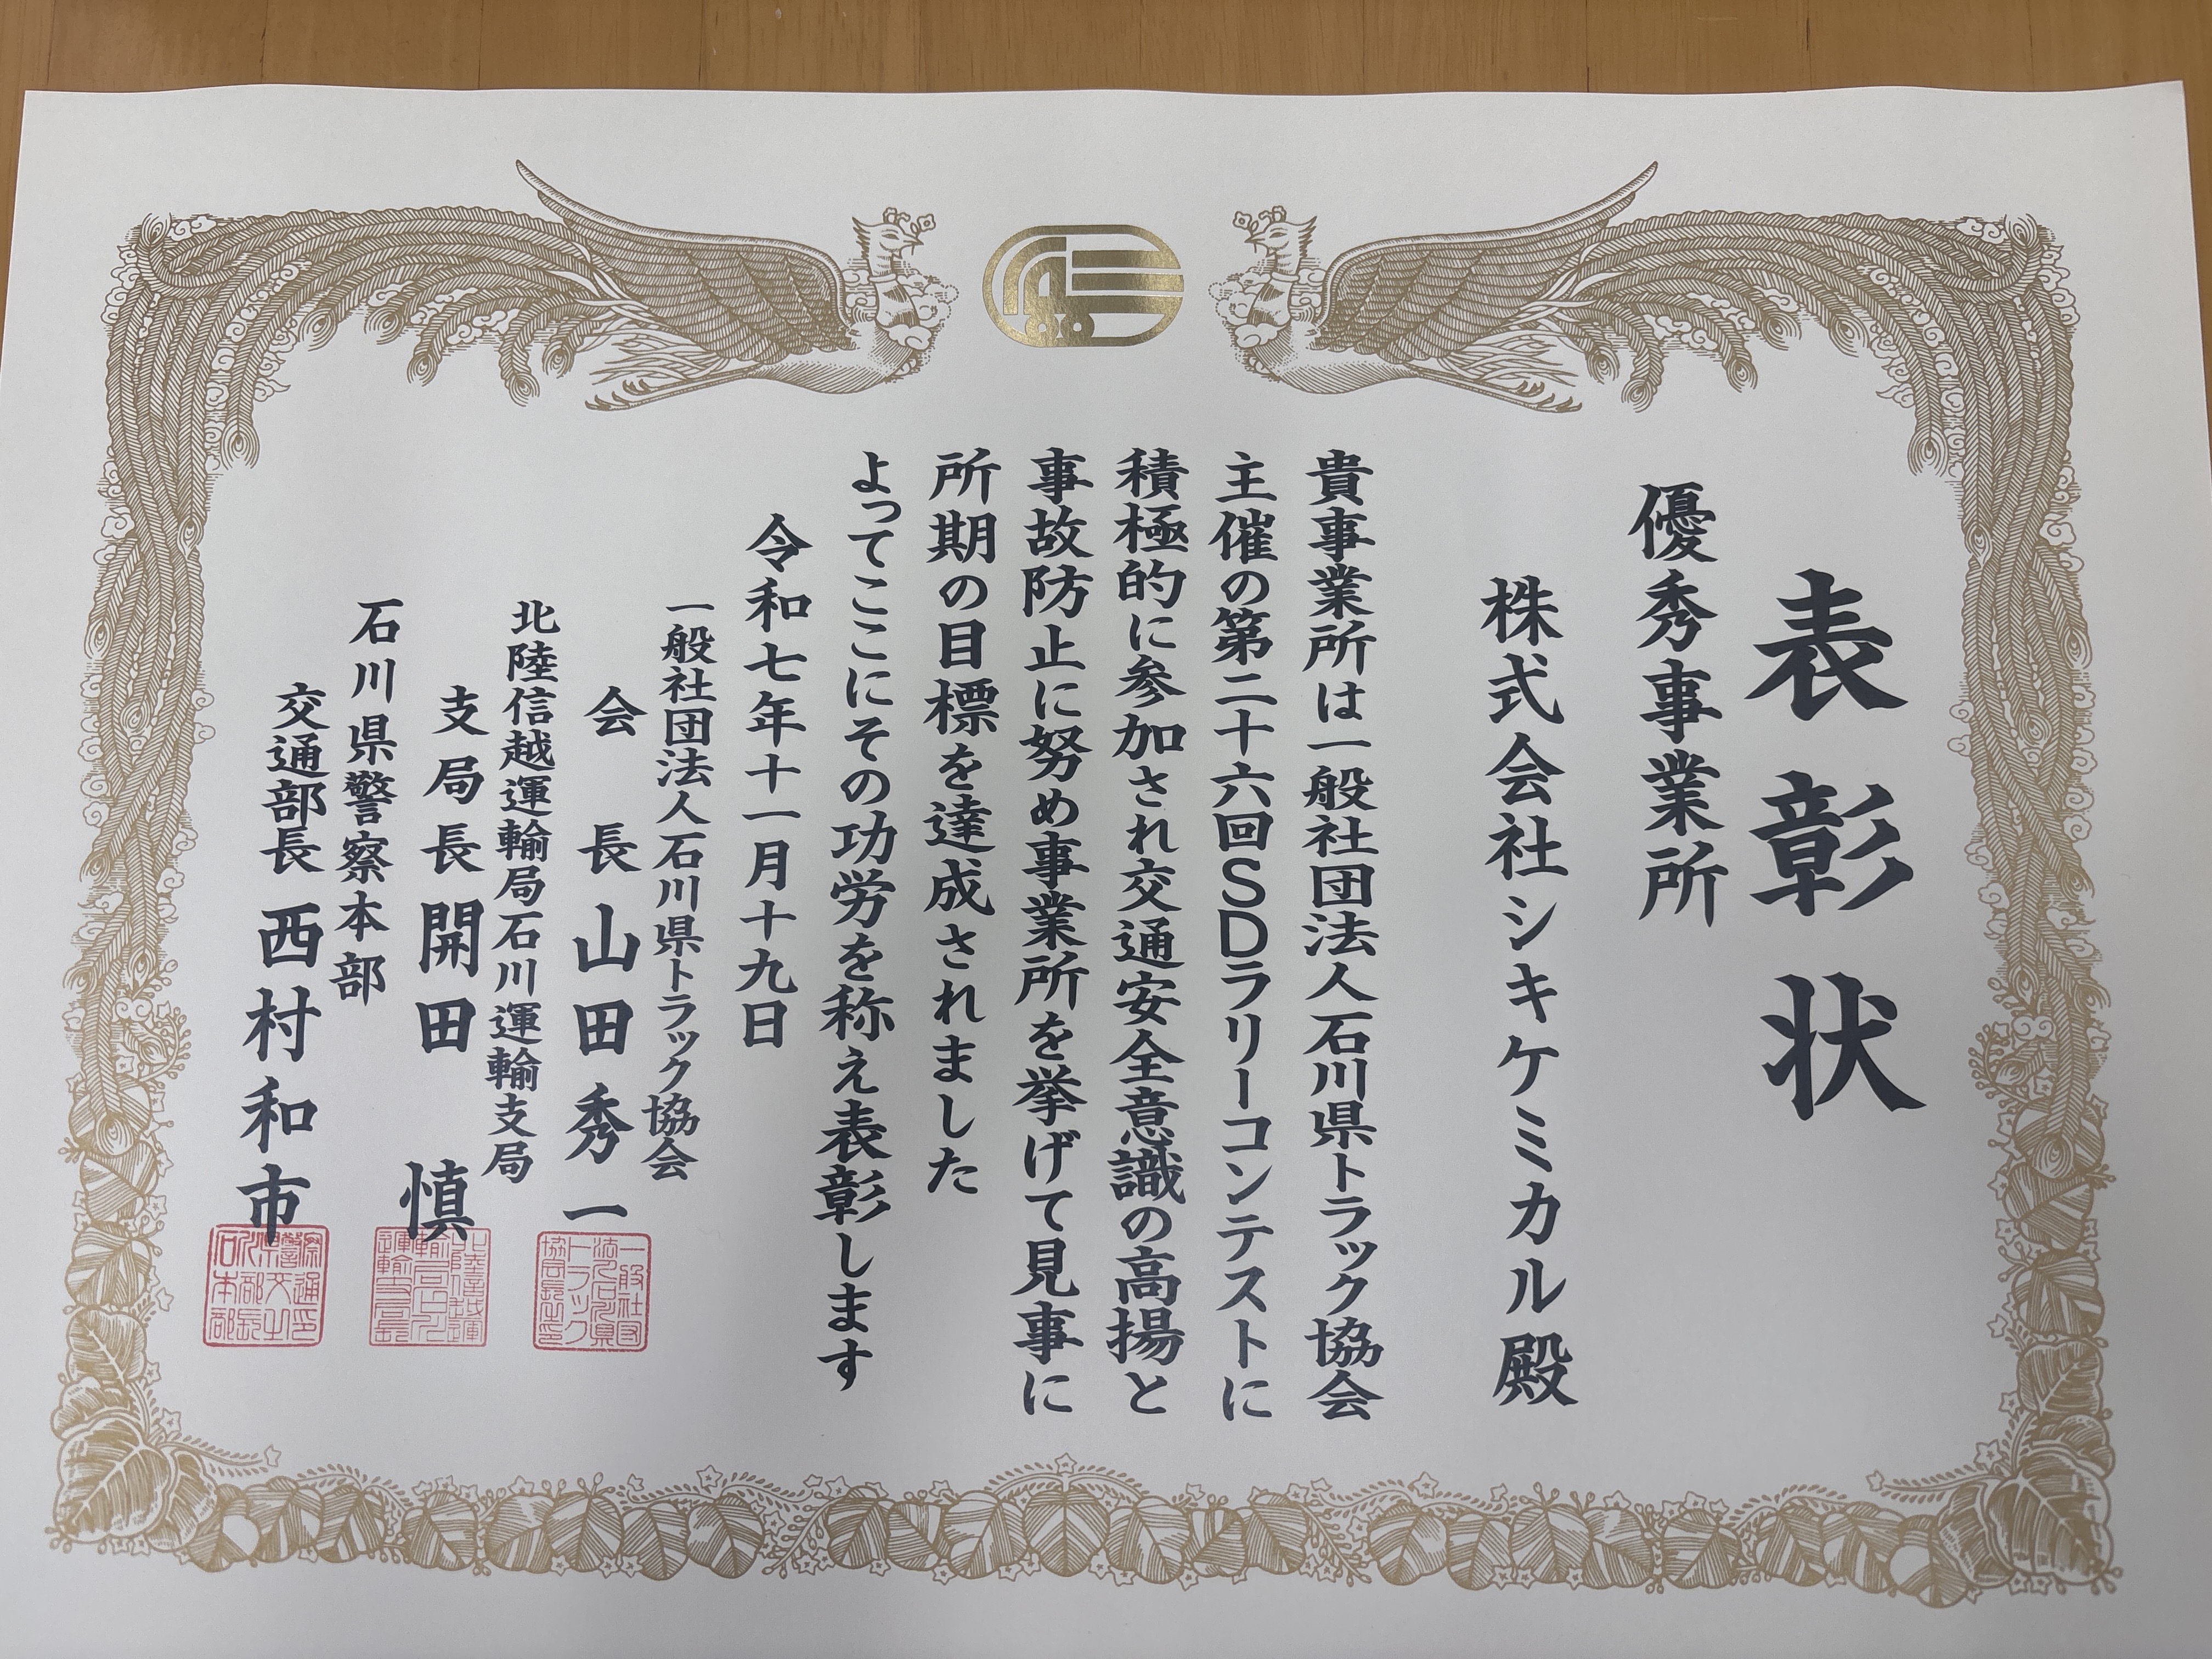 表彰状
優秀事業所
株式会社シキケミカル殿
貴事業所は一般社団法人石川県トラック協会
主催の第二十六回SDラリーコンテストに
積極的に参加され交通安全意識の高揚と
事故防止に努め事業所を挙げて見事に
所期の目標を達成されました
よってここにその功労を称え表彰します
令和七年十一月十九日
一般社団法人石川県トラック協会
会長山田秀一
北陸信越運輸局石川運輸支局
支局長開田慎
石川県警察本部
交通部長西村和市